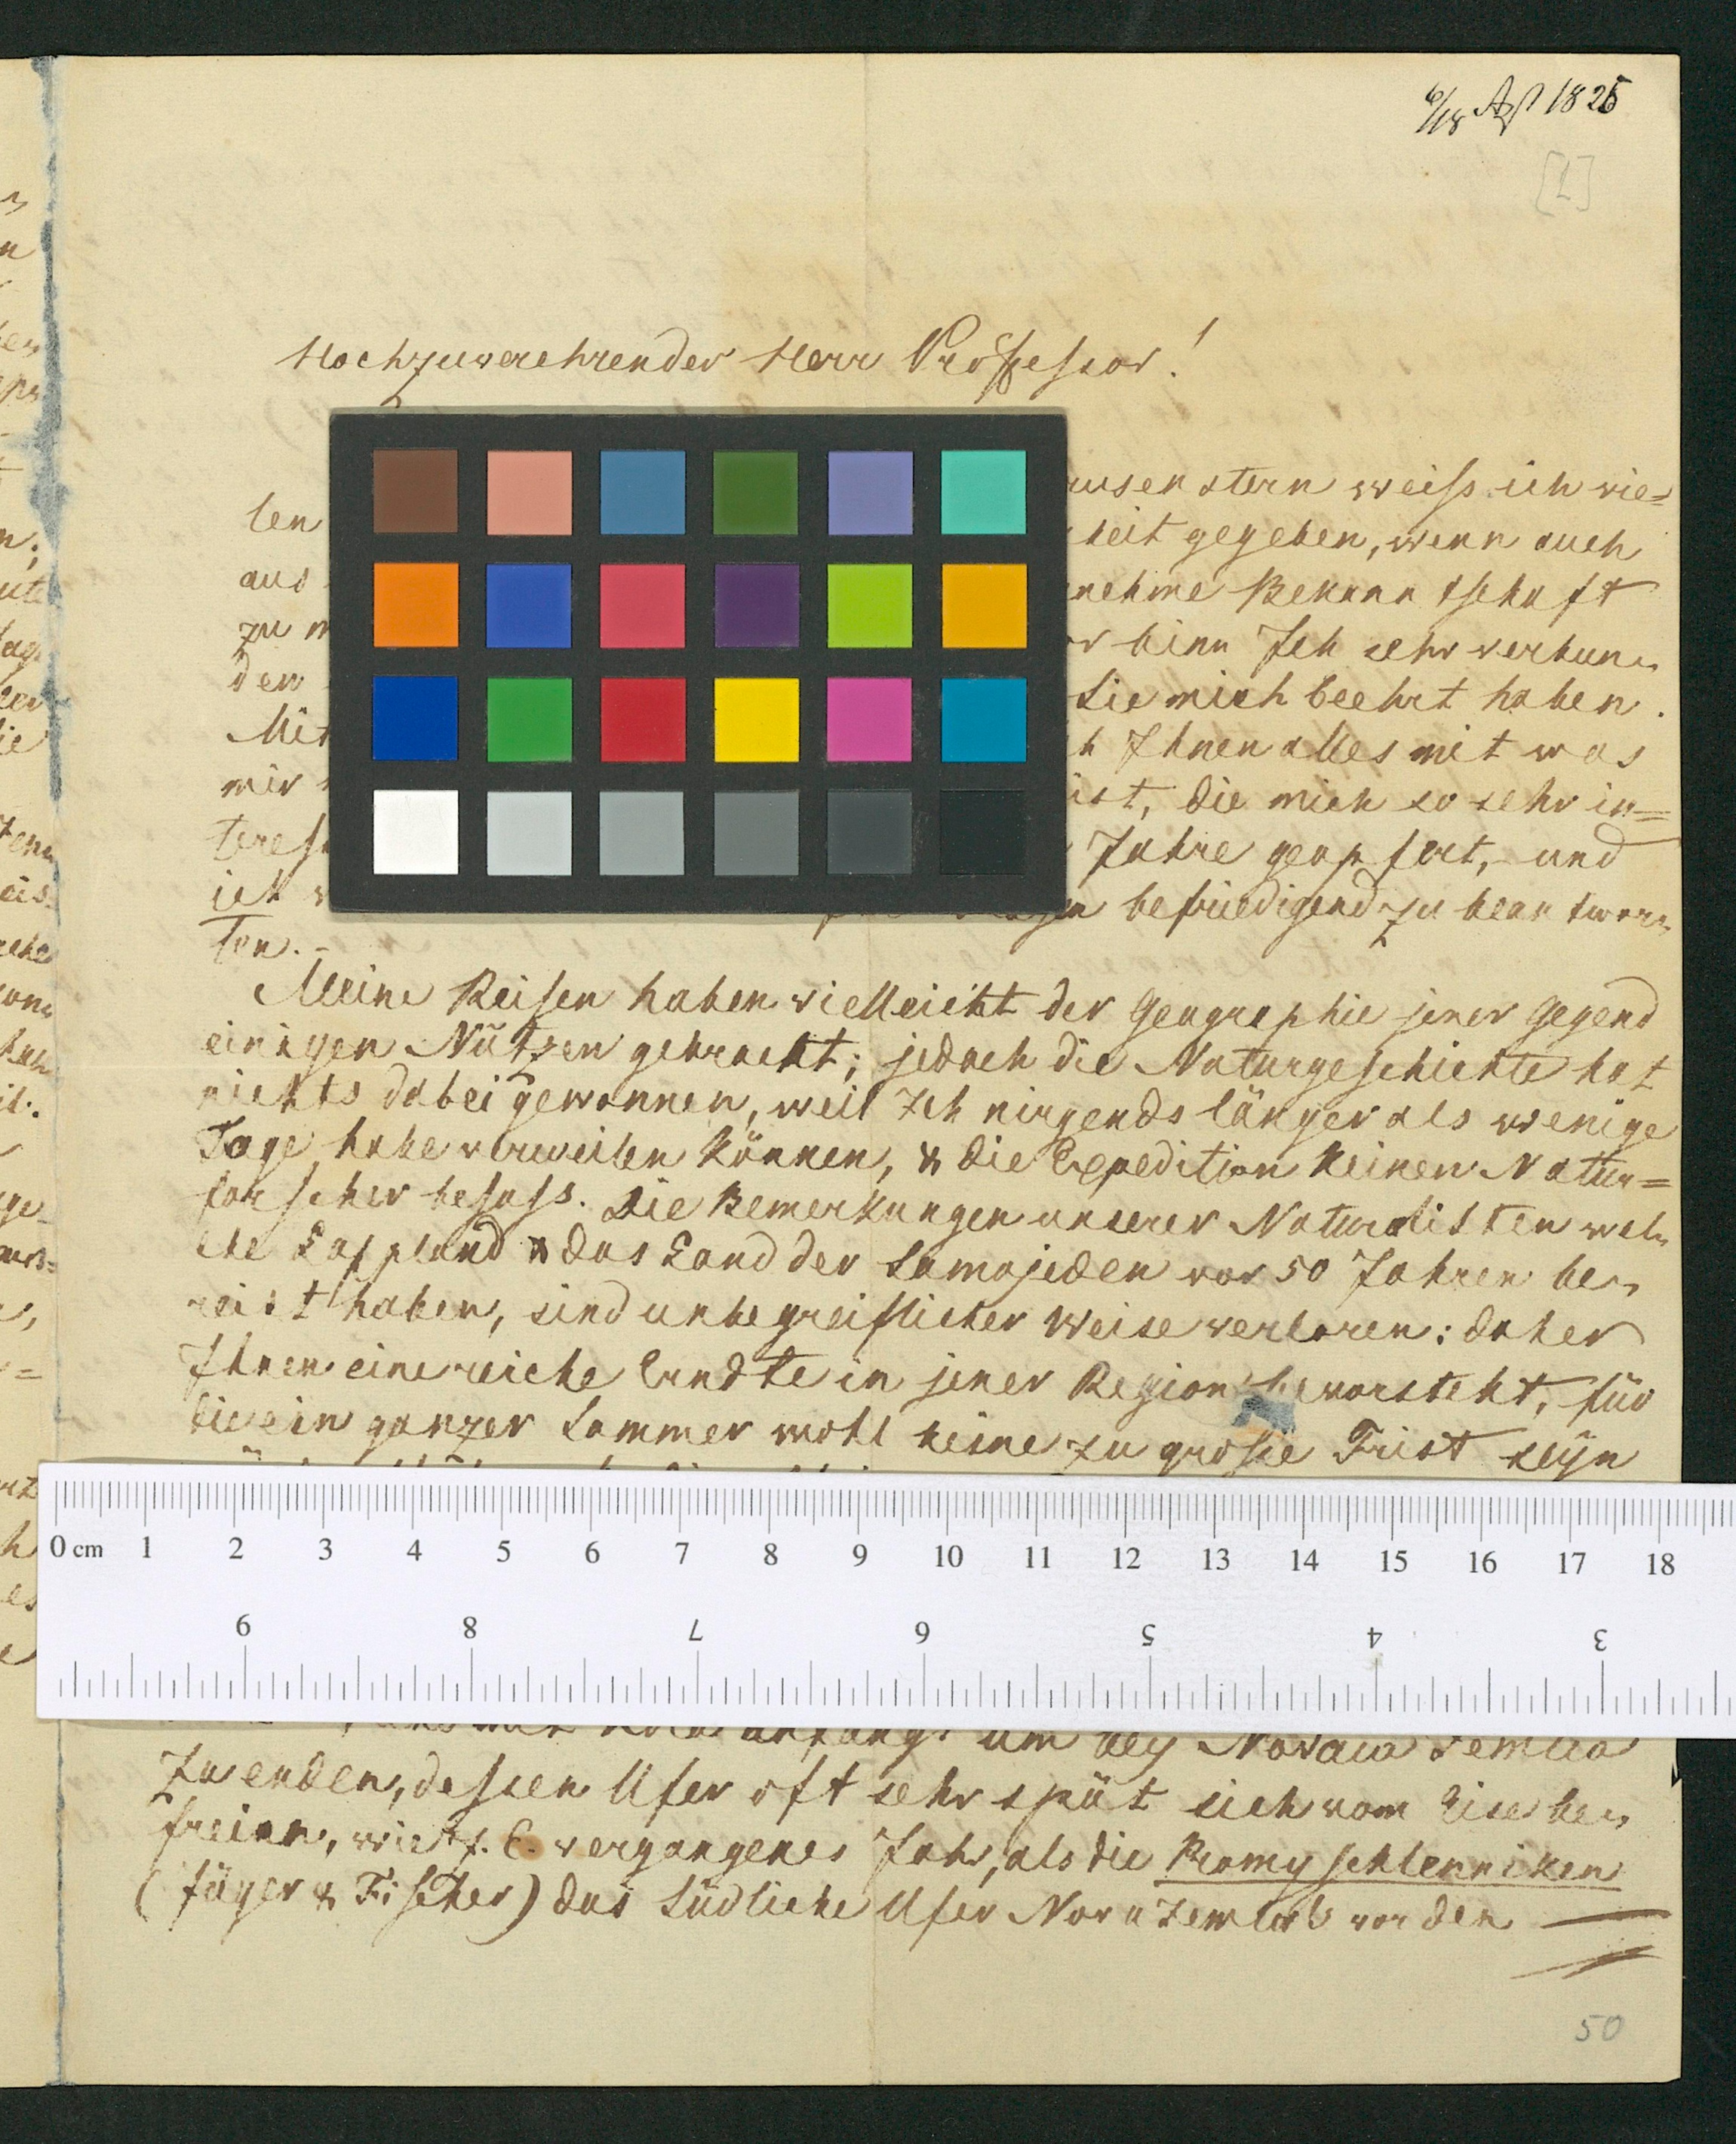 6/18 Agst 1825
[1]
Hochzuverehrender Herr Professor!
usenstern weiss ich vie=
len
keit gegeben, wenn auch
aus
nehme Bekanntschaft
zu m
r binn Ich sehr verbun
den
Sie mich beehrt haben.
Mit
h Ihnen alles mit was
mir
ist, die mich so sehr in=
teress
Jahre geopfert, und
ich
befriedigend zu beantwor
ten. -
Meine Reisen haben vielleicht der Geographie jener Gegend
einigen Nützen gebracht; jedoch die Naturgeschichte hat
nichts dabei gewonnen, weil Ich nirgends länger als wenige
Tage habe verweilen können, & die Expedition keinen Natur=
forscher besass. Die Bemerkungen unserer Naturalisten wel
che Lappland & das Land der Samojeden vor 50 Jahren be
reist haben, sind unbegreiflicher Weise verloren: daher
Ihnen eine reiche Erndte in jener Region bevorsteht, für
die ein ganzer Sommer wohl keine zu grosse Frist seÿn
anfängt um beÿ Novaia Semlia
zu enden, dessen Ufer oft sehr spät sich vom Eise be
freien, wie z. E. vergangenes Jahr, als die Promyschlenniken
(Jäger & Fischer) das Südliche Ufer Nova Zemlas vor den
50
0 cm 1 2 3 4 5 6 7 8 9 10 11 12 13 14 15 16 17 18
9 8 7 6 5 4 3